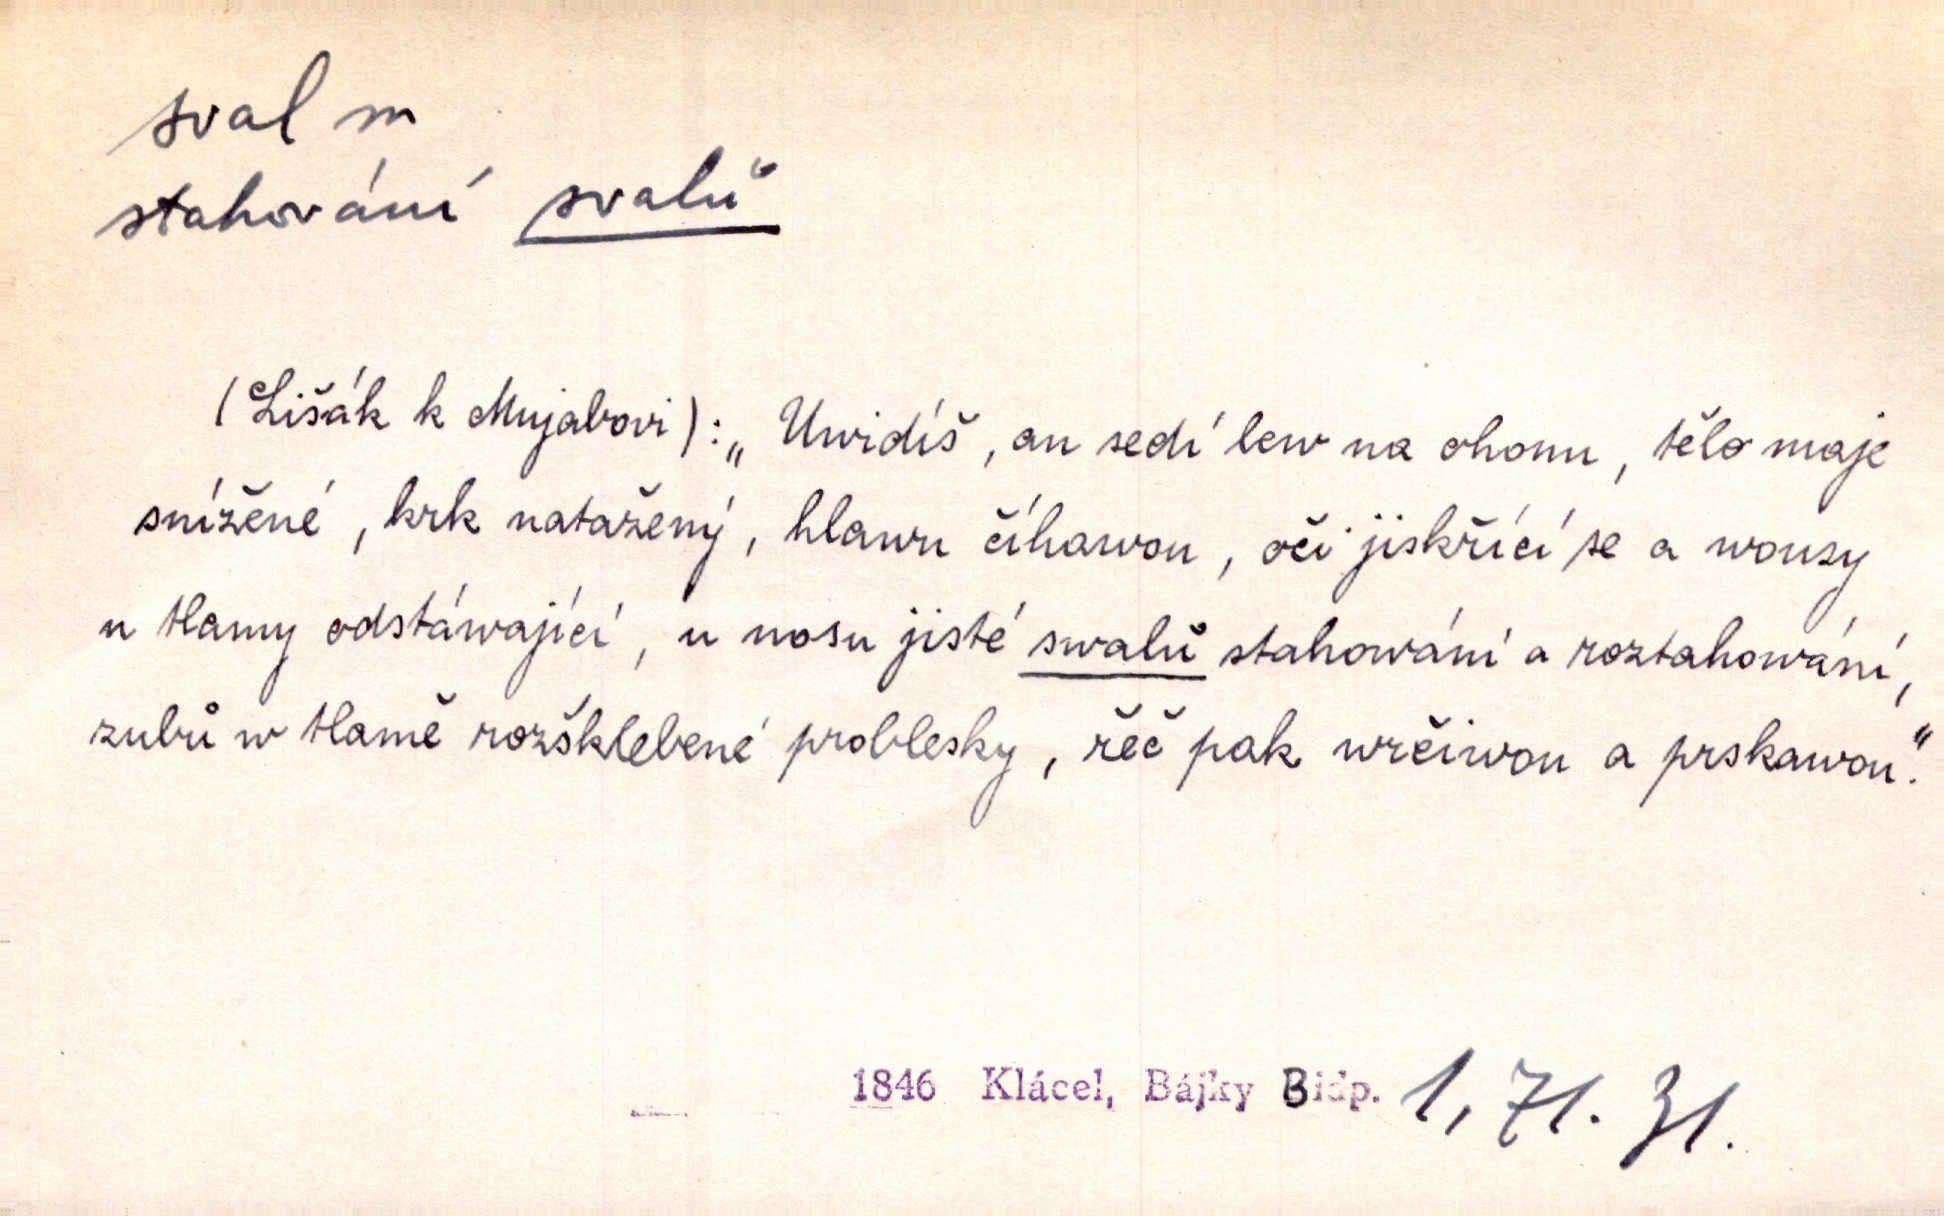 sval m
stahování svalů
(Lišák k Mujabovi): „Uwidíš, an sedí lew na ohonu, tělo maje
snížené, krk natažený, hlawu číhawou, oči jiskřící se a wousy
u tlamy odstáwající, u nosu jisté swalů stahowání a roztahowání,
zubů w tlamě rozšklebené problesky, řeč pak wrčiwou a prskawou."
1846 Klácel, Bájky Bidp. 1, 71. 31.